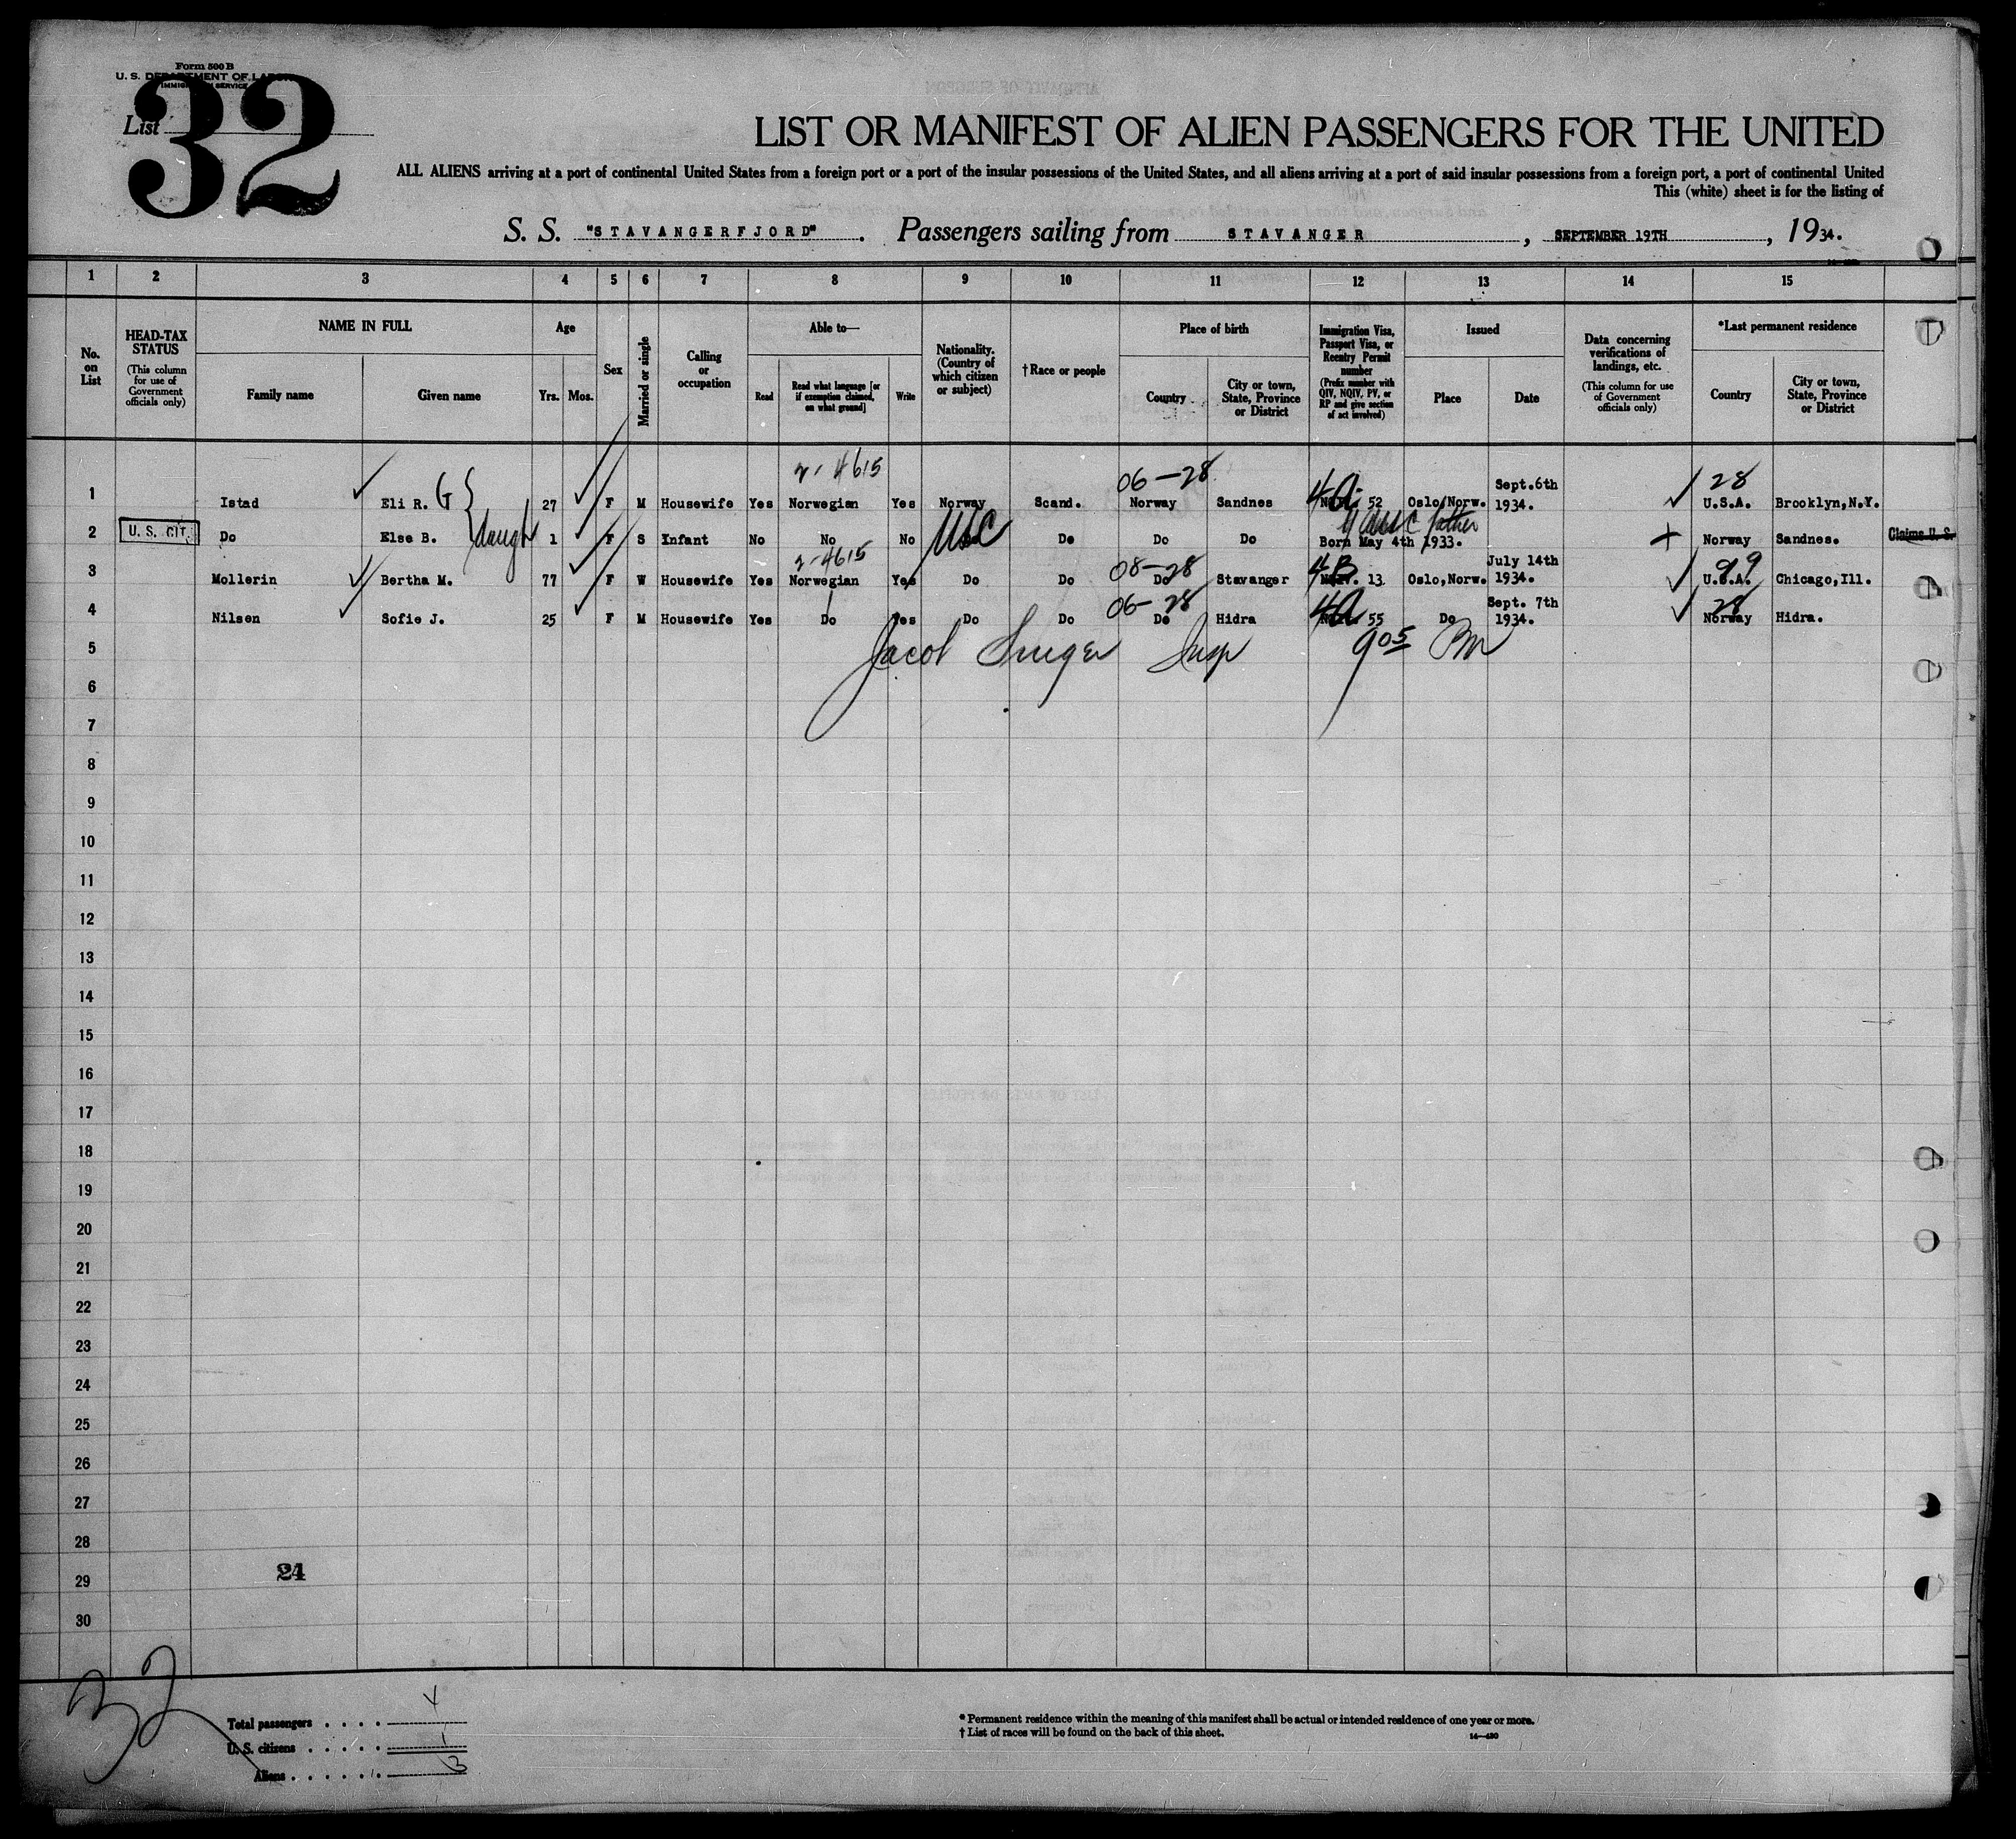 Form 500 B
U. S. DEPARTMENT OF LABOR
IMMIGRATION SERVICE
List 32
LIST OR MANIFEST OF ALIEN PASSENGERS FOR THE UNITED
ALL ALIENS arriving at a port of continental United States from a foreign port or a port of the insular possessions of the United States, and all aliens arriving at a port of said insular possessions from a foreign port, a port of continental United
This (white) sheet is for the listing of
S. S. "STAVANGERFJORD". Passengers sailing from STAVANGER, SEPTEMBER 19TH, 1934.
1 2 3 4 5 6 7 8 9 10 11 12 13 14 15
No. on List
HEAD-TAX STATUS
(This column for use of Government officials only)
NAME IN FULL
Family name Given name
Age
Yrs. Mos.
Sex
Married or single
Calling or occupation
Able to—
Read
Read what language [or if exemption claimed, on what ground]
Write
Nationality. (Country of which citizen or subject)
† Race or people
Place of birth
Country
City or town, State, Province or District
Immigration Visa, Passport Visa, or Reentry Permit number
(Prefix number with QIV, NQIV, PV, or RP and give section of act involved)
Issued
Place Date
Data concerning verifications of landings, etc.
(This column for use of Government officials only)
*Last permanent residence
Country
City or town, State, Province or District
2-4615 06-28 Sept.6th 28
1 Istad Eli R. G 27 F M Housewife Yes Norwegian Yes Norway Scand. Norway Sandnes 4a 52 Oslo/Norw. 1934. U.S.A. Brooklyn,N.Y.
father
2 U. S. CIT. Do Else B. daught 1 F S Infant No No No USC Do Do Do Born May 4th 1933. + Norway Sandnes. Claims U. S.
2-4615 08-28 July 14th 99
3 Mollerin Bertha M. 77 F W Housewife Yes Norwegian Yes Do Do Do Stavanger 4B 13 Oslo,Norw. 1934. U.S.A. Chicago,Ill.
06-28 Sept. 7th 28
4 Nilsen Sofie J. 25 F M Housewife Yes Do Yes Do Do Do Hidra 4a 55 Do 1934. Norway Hidra.
5 Jacob Insp 9 05 Pm
6
7
8
9
10
11
12
13
14
15
16
17
18
19
20
21
22
23
24
25
26
27
28
24
29
30
32
Total passengers . . . . 4
U. S. citizens . . . . . 1
Aliens . . . . . . 3
* Permanent residence within the meaning of this manifest shall be actual or intended residence of one year or more.
† List of races will be found on the back of this sheet.
14—430